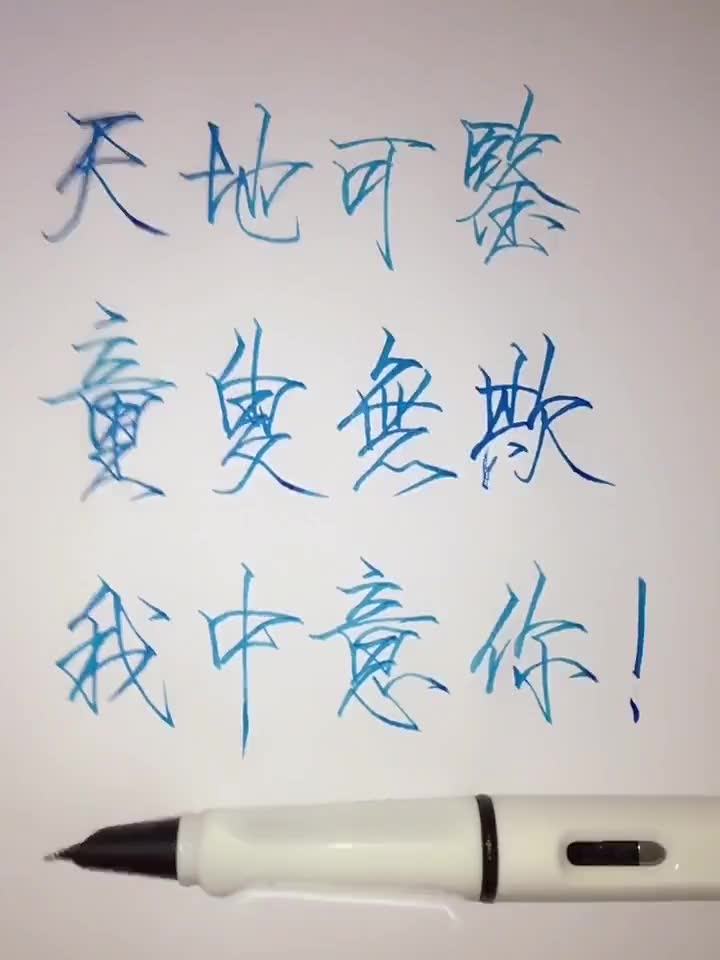 天地可鑒
童叟無欺
我中意你！